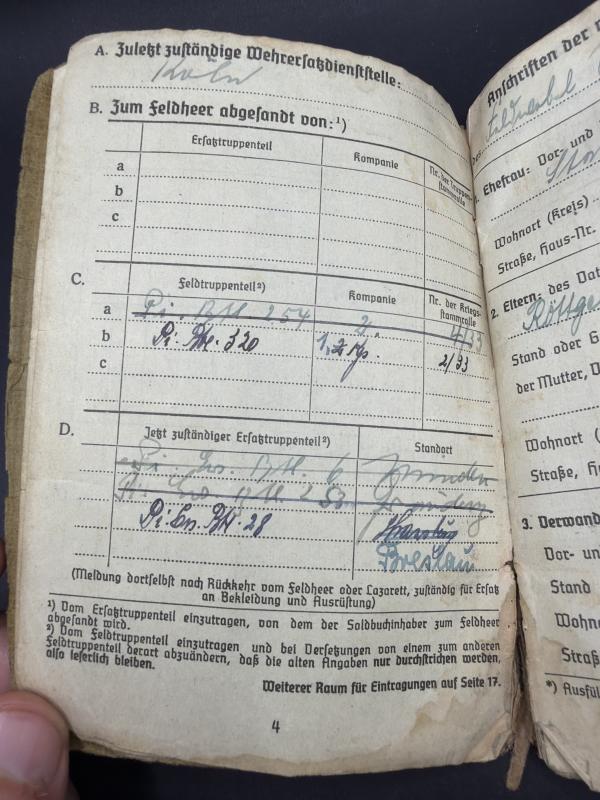 A. Zuletzt zuständige Wehrersatzdienststelle:
Köln
B. Zum Feldheer abgesandt von:¹)
Ersatztruppenteil
Kompanie
Nr. der Truppen-
stammrolle
a
b
c
C.
Feldtruppenteil²)
Kompanie
Nr. der Kriegs-
stammrolle
a Pi. Btl. 254 2. 4/33
b Pi. Btl. 320 1, 2. Kp. 2/33
c
D.
Jetzt zuständiger Ersatztruppenteil²)
Standort
Pi. Ers. Btl. 6 Minden
Pi. Ers. Btl. 253
Pi. Ers. Btl. 28 Harburg
Breslau
(Meldung dortselbst nach Rückkehr vom Feldheer oder Lazarett, zuständig für Ersatz
an Bekleidung und Ausrüstung)
¹) Vom Ersatztruppenteil einzutragen, von dem der Soldbuchinhaber zum Feldheer
abgesandt wird.
²) Vom Feldtruppenteil einzutragen und bei Versetzungen von einem zum anderen
Feldtruppenteil derart abzuändern, daß die alten Angaben nur durchstrichen werden,
also leserlich bleiben.
Weiterer Raum für Eintragungen auf Seite 17.
4
Anschriften der
des Feldwebel
1. Ehefrau: Vor- und
Wohnort (Kreis)
Straße, Haus-Nr.
2. Eltern: des Vat
Röttge
Stand oder G
der Mutter, V
Wohnort (
Straße, H
3. Verwand
Vor- un
Stand
Wohn
Straß
*) Ausfül